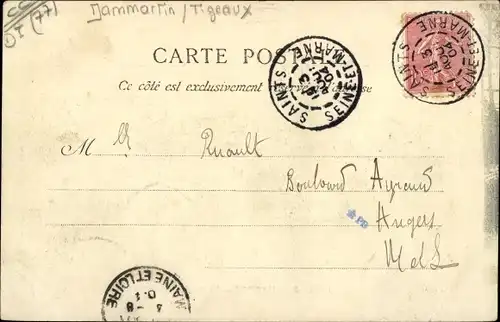 DI (77)
Dammartin / Tigeaux
CARTE POSTALE
Ce côté est exclusivement réservé à l'adresse
SAINTS
SEINE-ET-MARNE
04
SAINTS
SEINE-ET-MARNE
04
M Ruault
Boulevard Ayraud
Angers
M et L
MAINE ET LOIRE